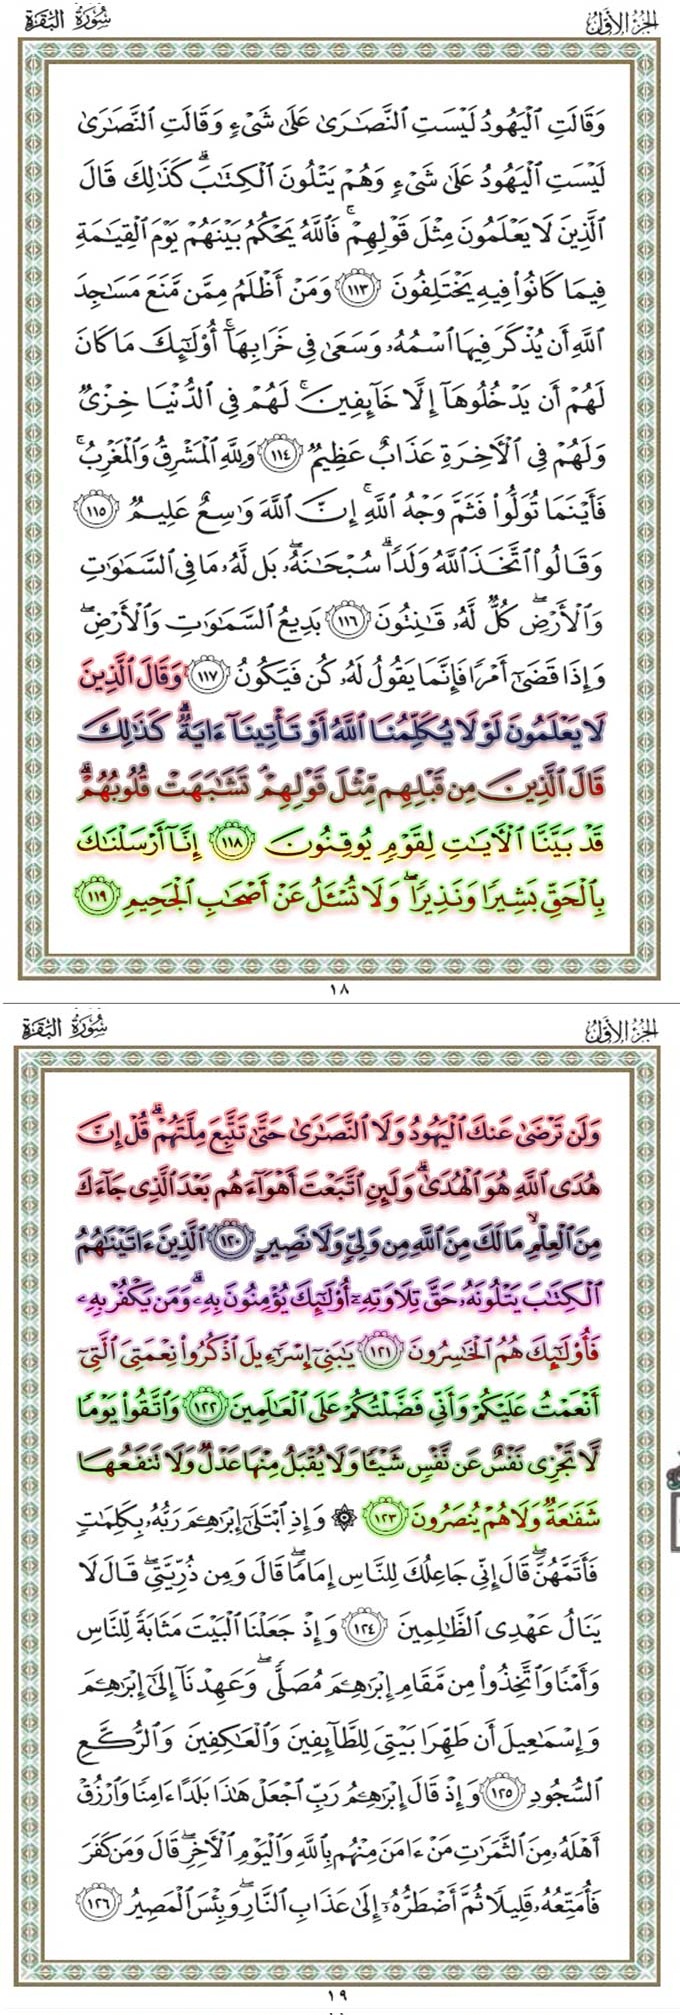 الجزء الأول سورة البقرة
وَقَالَتِ ٱلْيَهُودُ لَيْسَتِ ٱلنَّصَٰرَىٰ عَلَىٰ شَىْءٍ وَقَالَتِ ٱلنَّصَٰرَىٰ
لَيْسَتِ ٱلْيَهُودُ عَلَىٰ شَىْءٍ وَهُمْ يَتْلُونَ ٱلْكِتَٰبَ ۗ كَذَٰلِكَ قَالَ
ٱلَّذِينَ لَا يَعْلَمُونَ مِثْلَ قَوْلِهِمْ ۚ فَٱللَّهُ يَحْكُمُ بَيْنَهُمْ يَوْمَ ٱلْقِيَٰمَةِ
فِيمَا كَانُوا۟ فِيهِ يَخْتَلِفُونَ ١١٣ وَمَنْ أَظْلَمُ مِمَّن مَّنَعَ مَسَٰجِدَ
ٱللَّهِ أَن يُذْكَرَ فِيهَا ٱسْمُهُۥ وَسَعَىٰ فِى خَرَابِهَآ ۚ أُو۟لَٰٓئِكَ مَا كَانَ
لَهُمْ أَن يَدْخُلُوهَآ إِلَّا خَآئِفِينَ ۚ لَهُمْ فِى ٱلدُّنْيَا خِزْىٌ
وَلَهُمْ فِى ٱلْءَاخِرَةِ عَذَابٌ عَظِيمٌ ١١٤ وَلِلَّهِ ٱلْمَشْرِقُ وَٱلْمَغْرِبُ ۚ
فَأَيْنَمَا تُوَلُّوا۟ فَثَمَّ وَجْهُ ٱللَّهِ ۚ إِنَّ ٱللَّهَ وَٰسِعٌ عَلِيمٌ ١١٥
وَقَالُوا۟ ٱتَّخَذَ ٱللَّهُ وَلَدًا ۗ سُبْحَٰنَهُۥ ۖ بَل لَّهُۥ مَا فِى ٱلسَّمَٰوَٰتِ
وَٱلْأَرْضِ ۖ كُلٌّ لَّهُۥ قَٰنِتُونَ ١١٦ بَدِيعُ ٱلسَّمَٰوَٰتِ وَٱلْأَرْضِ ۖ
وَإِذَا قَضَىٰٓ أَمْرًا فَإِنَّمَا يَقُولُ لَهُۥ كُن فَيَكُونُ ١١٧ وَقَالَ ٱلَّذِينَ
لَا يَعْلَمُونَ لَوْلَا يُكَلِّمُنَا ٱللَّهُ أَوْ تَأْتِينَآ ءَايَةٌ ۗ كَذَٰلِكَ
قَالَ ٱلَّذِينَ مِن قَبْلِهِم مِّثْلَ قَوْلِهِمْ ۘ تَشَٰبَهَتْ قُلُوبُهُمْ ۗ
قَدْ بَيَّنَّا ٱلْءَايَٰتِ لِقَوْمٍ يُوقِنُونَ ١١٨ إِنَّآ أَرْسَلْنَٰكَ
بِٱلْحَقِّ بَشِيرًا وَنَذِيرًا ۖ وَلَا تُسْـَٔلُ عَنْ أَصْحَٰبِ ٱلْجَحِيمِ ١١٩
١٨
الجزء الأول سورة البقرة
وَلَن تَرْضَىٰ عَنكَ ٱلْيَهُودُ وَلَا ٱلنَّصَٰرَىٰ حَتَّىٰ تَتَّبِعَ مِلَّتَهُمْ ۗ قُلْ إِنَّ
هُدَى ٱللَّهِ هُوَ ٱلْهُدَىٰ ۗ وَلَئِنِ ٱتَّبَعْتَ أَهْوَآءَهُم بَعْدَ ٱلَّذِى جَآءَكَ
مِنَ ٱلْعِلْمِ ۙ مَا لَكَ مِنَ ٱللَّهِ مِن وَلِىٍّ وَلَا نَصِيرٍ ١٢٠ ٱلَّذِينَ ءَاتَيْنَٰهُمُ
ٱلْكِتَٰبَ يَتْلُونَهُۥ حَقَّ تِلَاوَتِهِۦٓ أُو۟لَٰٓئِكَ يُؤْمِنُونَ بِهِۦ ۗ وَمَن يَكْفُرْ بِهِۦ
فَأُو۟لَٰٓئِكَ هُمُ ٱلْخَٰسِرُونَ ١٢١ يَٰبَنِىٓ إِسْرَٰٓءِيلَ ٱذْكُرُوا۟ نِعْمَتِىَ ٱلَّتِىٓ
أَنْعَمْتُ عَلَيْكُمْ وَأَنِّى فَضَّلْتُكُمْ عَلَى ٱلْعَٰلَمِينَ ١٢٢ وَٱتَّقُوا۟ يَوْمًا
لَّا تَجْزِى نَفْسٌ عَن نَّفْسٍ شَيْـًٔا وَلَا يُقْبَلُ مِنْهَا عَدْلٌ وَلَا تَنفَعُهَا
شَفَٰعَةٌ وَلَا هُمْ يُنصَرُونَ ١٢٣ ۞ وَإِذِ ٱبْتَلَىٰٓ إِبْرَٰهِۦمَ رَبُّهُۥ بِكَلِمَٰتٍ
فَأَتَمَّهُنَّ ۖ قَالَ إِنِّى جَاعِلُكَ لِلنَّاسِ إِمَامًا ۖ قَالَ وَمِن ذُرِّيَّتِى ۖ قَالَ لَا
يَنَالُ عَهْدِى ٱلظَّٰلِمِينَ ١٢٤ وَإِذْ جَعَلْنَا ٱلْبَيْتَ مَثَابَةً لِّلنَّاسِ
وَأَمْنًا وَٱتَّخِذُوا۟ مِن مَّقَامِ إِبْرَٰهِۦمَ مُصَلًّى ۖ وَعَهِدْنَآ إِلَىٰٓ إِبْرَٰهِۦمَ
وَإِسْمَٰعِيلَ أَن طَهِّرَا بَيْتِىَ لِلطَّآئِفِينَ وَٱلْعَٰكِفِينَ وَٱلرُّكَّعِ
ٱلسُّجُودِ ١٢٥ وَإِذْ قَالَ إِبْرَٰهِۦمُ رَبِّ ٱجْعَلْ هَٰذَا بَلَدًا ءَامِنًا وَٱرْزُقْ
أَهْلَهُۥ مِنَ ٱلثَّمَرَٰتِ مَنْ ءَامَنَ مِنْهُم بِٱللَّهِ وَٱلْيَوْمِ ٱلْءَاخِرِ ۖ قَالَ وَمَن كَفَرَ
فَأُمَتِّعُهُۥ قَلِيلًا ثُمَّ أَضْطَرُّهُۥٓ إِلَىٰ عَذَابِ ٱلنَّارِ ۖ وَبِئْسَ ٱلْمَصِيرُ ١٢٦
١٩